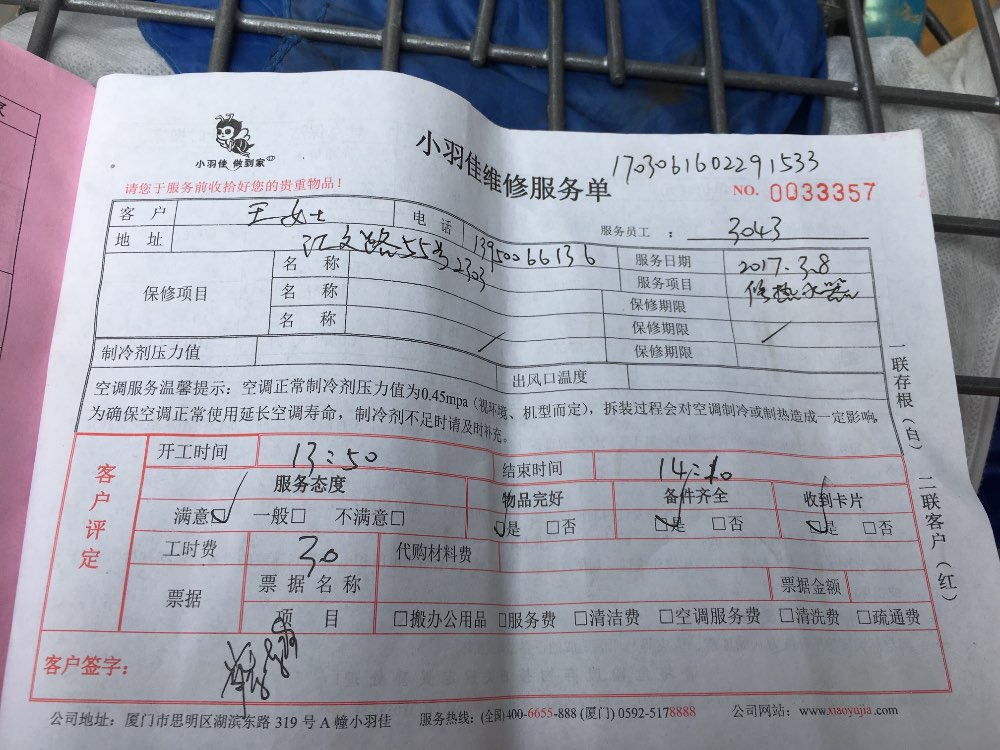 小羽佳 做到家
小羽佳维修服务单
1703061602291533
请您于服务前收拾好您的贵重物品！
NO. 0033357
客 户 王女士 电 话 13950066136 服务员工 ： 3043
地 址 江文路55号2303 服务日期 2017.3.8
保修项目 名 称 服务项目 修热水器
名 称 保修期限
名 称 保修期限
制冷剂压力值 保修期限
出风口温度
空调服务温馨提示：空调正常制冷剂压力值为0.45mpa（视环境、机型而定），拆装过程会对空调制冷或制热造成一定影响，
为确保空调正常使用延长空调寿命，制冷剂不足时请及时补充。
客户评定
开工时间 13:50 结束时间 14:10
服务态度 物品完好 备件齐全 收到卡片
满意☑ 一般□ 不满意□ ☑是 □否 ☑是 □否 ☑是 □否
工时费 30 代购材料费
票据 票 据 名 称 票据金额
项 目 □搬办公用品 □服务费 □清洁费 □空调服务费 □清洗费 □疏通费
客户签字：
公司地址：厦门市思明区湖滨东路 319 号 A 幢小羽佳 服务热线：(全国)400-6655-888 (厦门) 0592-5178888 公司网站：www.xiaoyujia.com
一联存根（白） 二联客户（红）